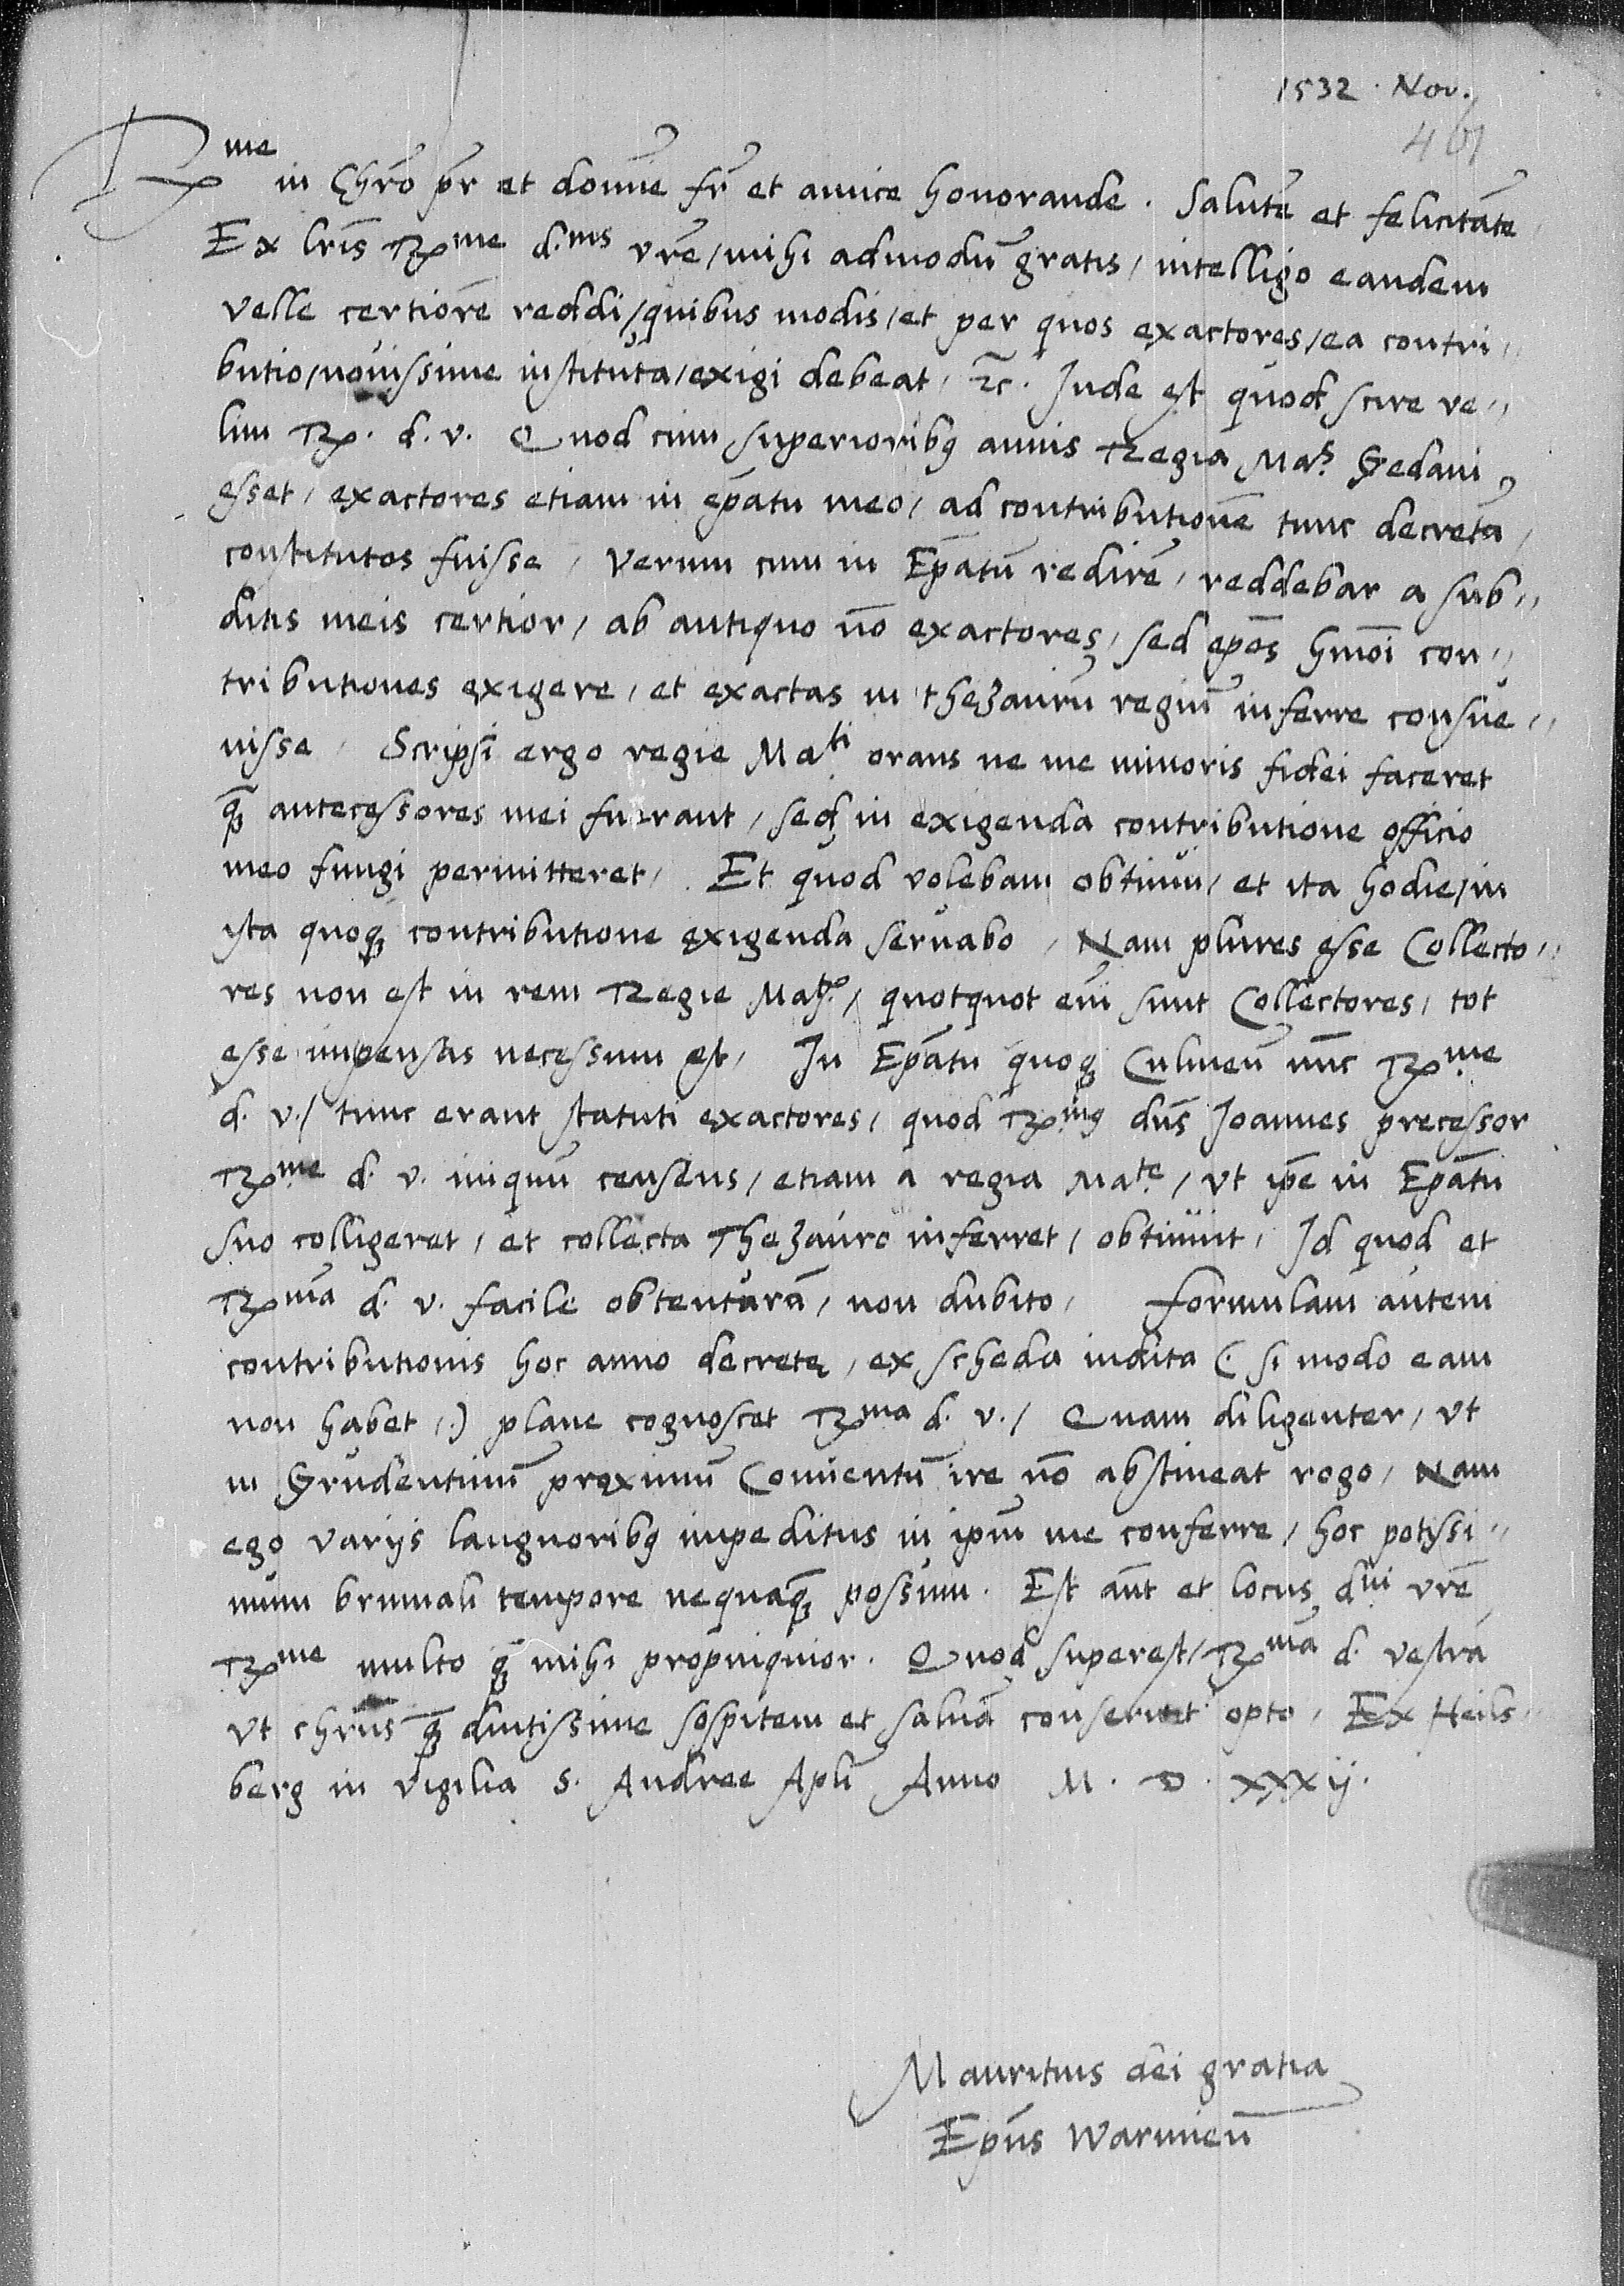 1532 . Nov.
461
Rme in Chro pr et domine fr et amice honorande . Salute et felicitate
Ex lris Rme d.nis vre / mihi admodu gratis / intelligo eandem
velle certiore reddi / quibus modis / et per quos exactores / ea contri„
butio / novissime instituta / exigi debeat / rc . Inde est quod scire ve„
lim R. d. v. Quod cum superioribꝰ annis Regia Mas Gedani
esset / exactores etiam in epatu meo / ad contributione tunc decreta /
constitutos fuisse / Verum cum in Epatu redire / reddebar a sub„
ditis meis certior / ab antiquo no exactores / sed epos hmoi con„
tributiones exigere / et exactas in thezauru regiu inferre consue„
uisse / Scripsi ergo regie Mati orans ne me minoris fidei faceret
qꝫ antecessores mei fuerant / sed in exigenda contributione officio
meo fungi permitteret / Et quod volebam obtinui / et ita hodie / in
ista quoqꝫ contributione exigenda seruabo / Nam plures esse Collecto„
res non est in rem Regie Matis / quotquot eni sunt Collectores / tot
esse impensas necessum est / In Epatu quoqꝫ Culmen nunc Rme
d. v. / tunc erant statuti exactores / quod Rmꝰ dns Joannes precessor
Rme d. v. iniquu censens / etiam a regia Mate / vt ipe in Epatu
suo colligeret / et collecta Thezauro inferret / obtinuit / Id quod et
Rma d. v. facile obtentura / non dubito / Formulam autem
contributionis hoc anno decretę / ex scheda indita (. si modo eam
non habet /.) plane cognoscet Rma d. v. / Quam diligenter / vt
in Grudentinu proximu Conuentu ire no abstineat rogo / Nam
ego varijs languoribꝰ impeditus in ipm me conferre / hoc potissi„
mum brumali tempore nequaqꝫ possum . Est aut et locus dni vre
Rme multo qꝫ mihi propinquior . Quod superest / Rma d. vestra
vt chrus qꝫ diutissime sospitem et salua conseruet opto / Ex Heils„
berg in vigilia S. Andree Apli Anno M . D . xxxij .
Mauritius dei gratia
Epus Warmien